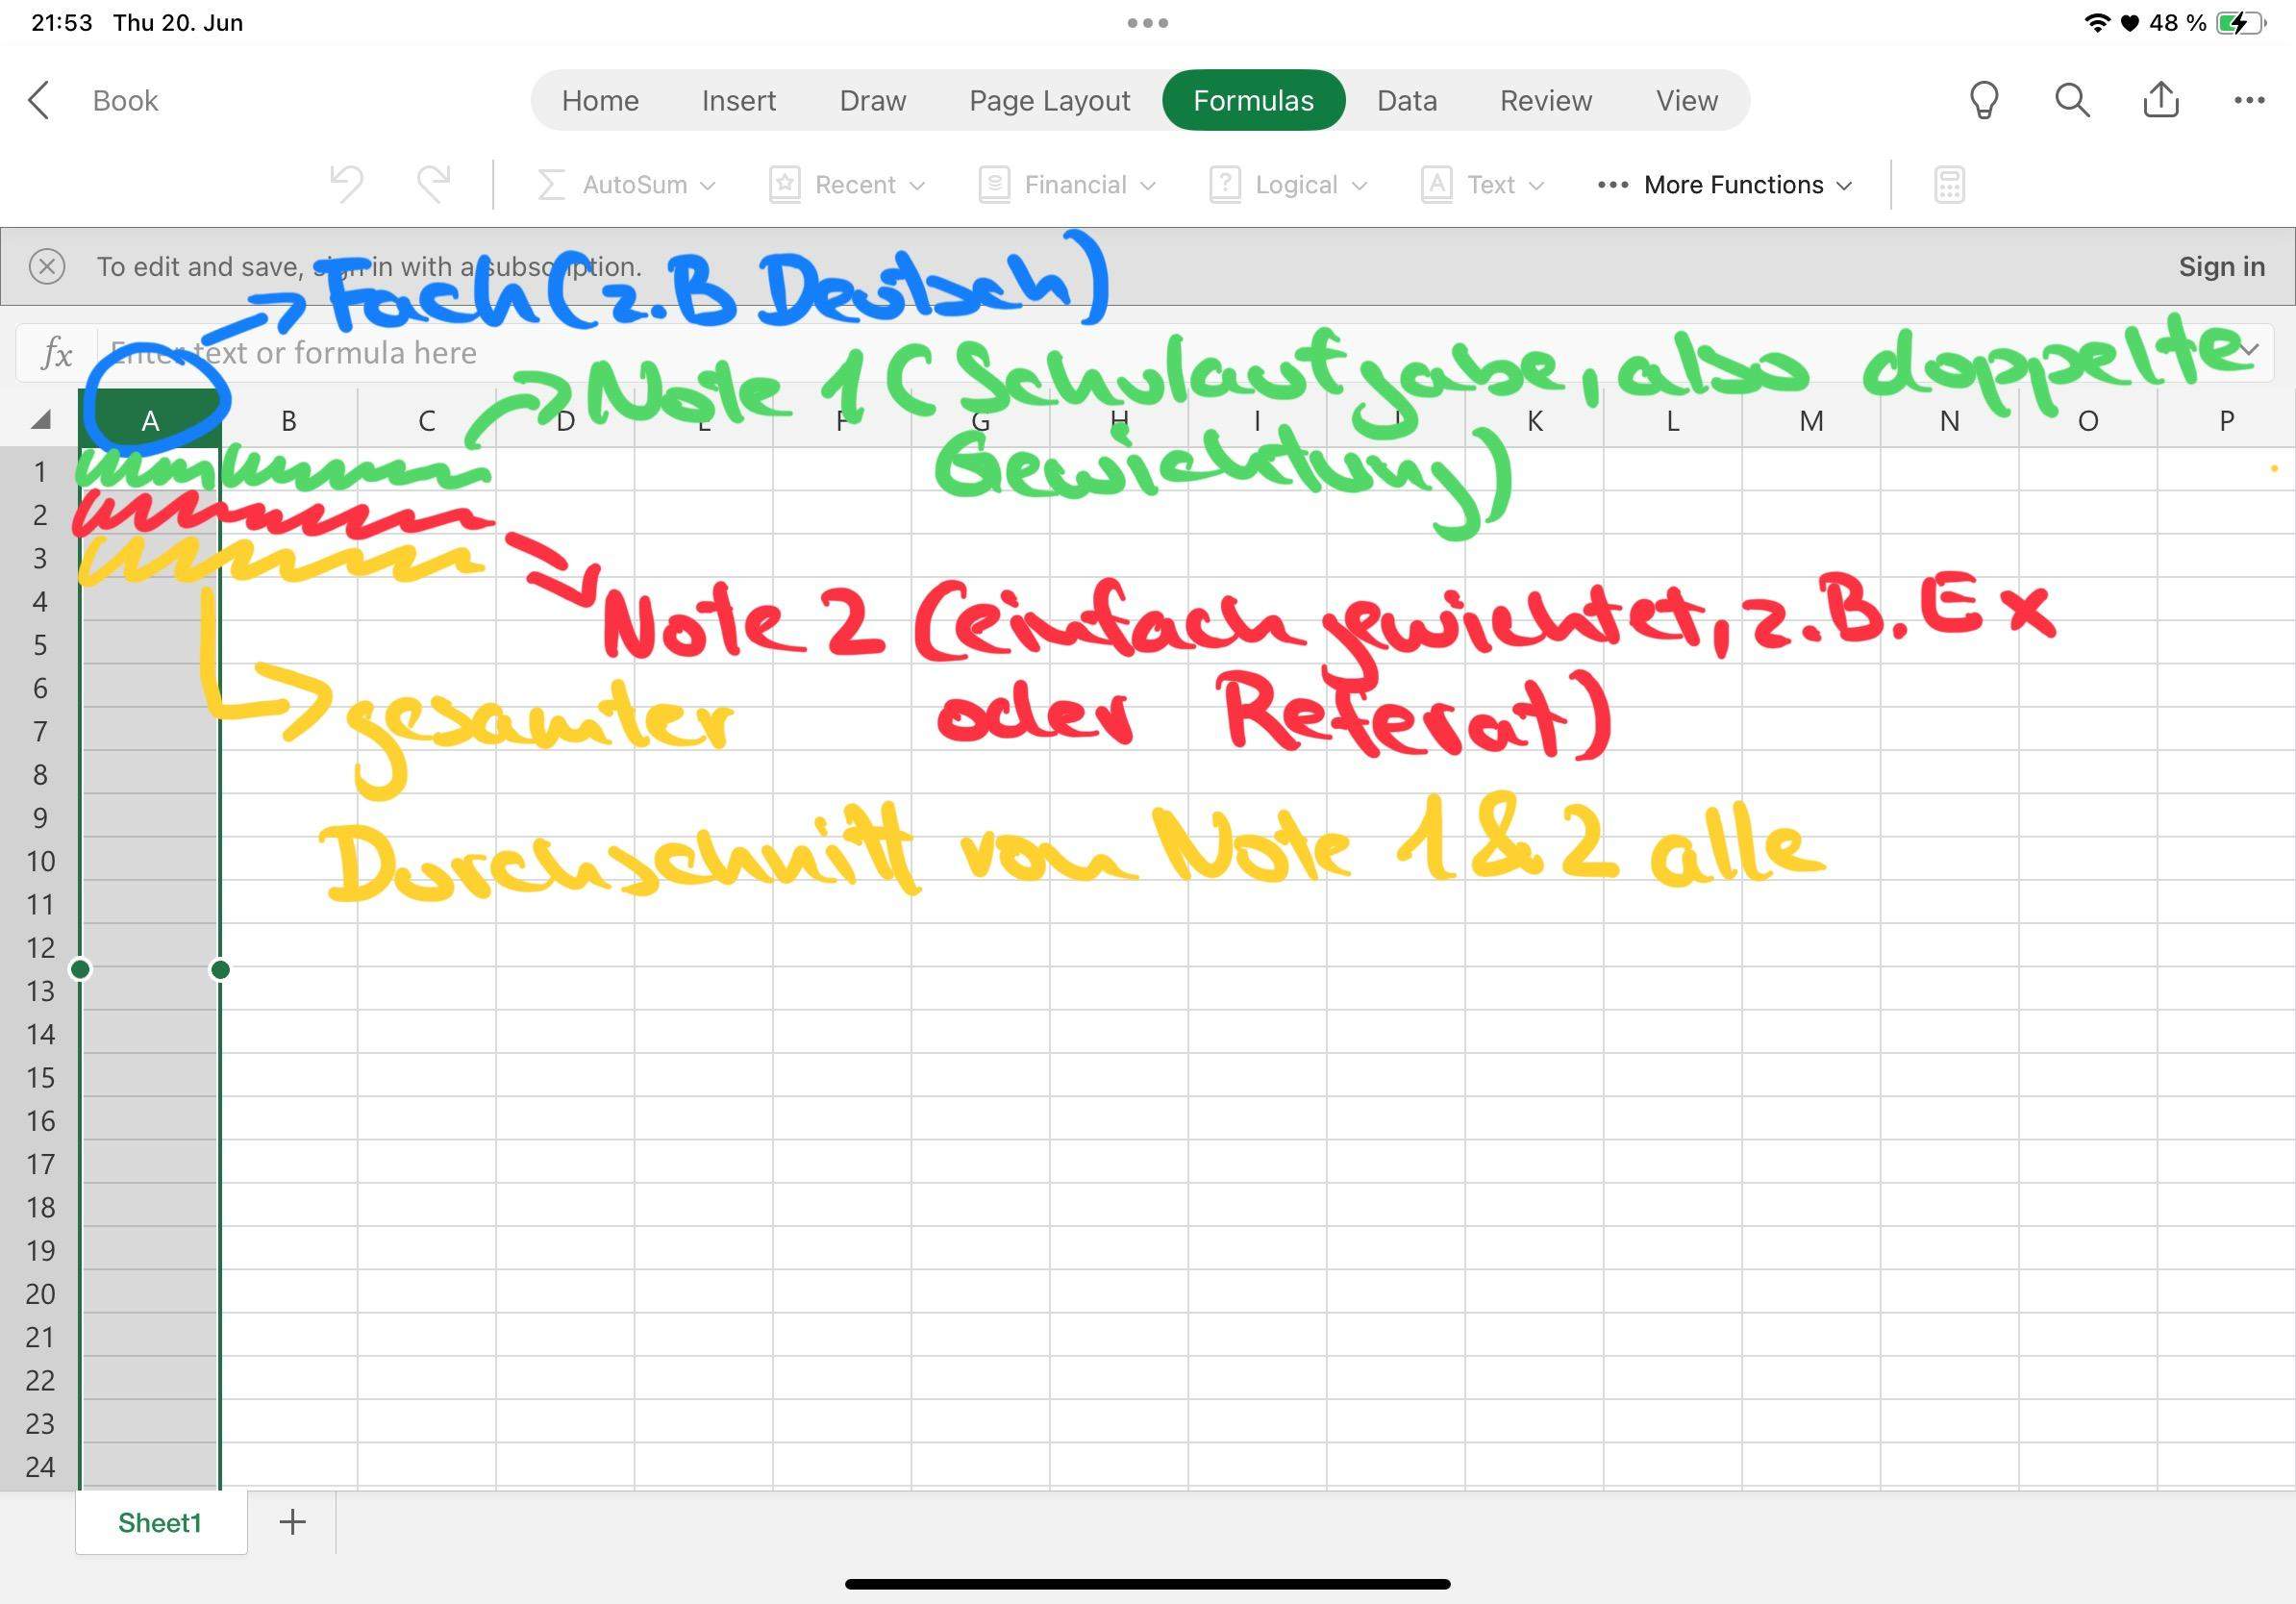 21:53 Thu 20. Jun 48 %
Book Home Insert Draw Page Layout Formulas Data Review View
AutoSum Recent Financial Logical Text More Functions
To edit and save, sign in with a subscription. Sign in
→ Fach (z.B Deutsch)
fx Enter text or formula here
→ Note 1 (Schulaufgabe, also doppelte
A B C D E F G H I J K L M N O P
Gewichtung)
1
2
3
Note 2 (einfach gewichtet, z.B. Ex
4
5
6
oder Referat)
gesamter
7
8
9
Durchschnitt von Note 1 & 2 alle
10
11
12
13
14
15
16
17
18
19
20
21
22
23
24
Sheet1 +